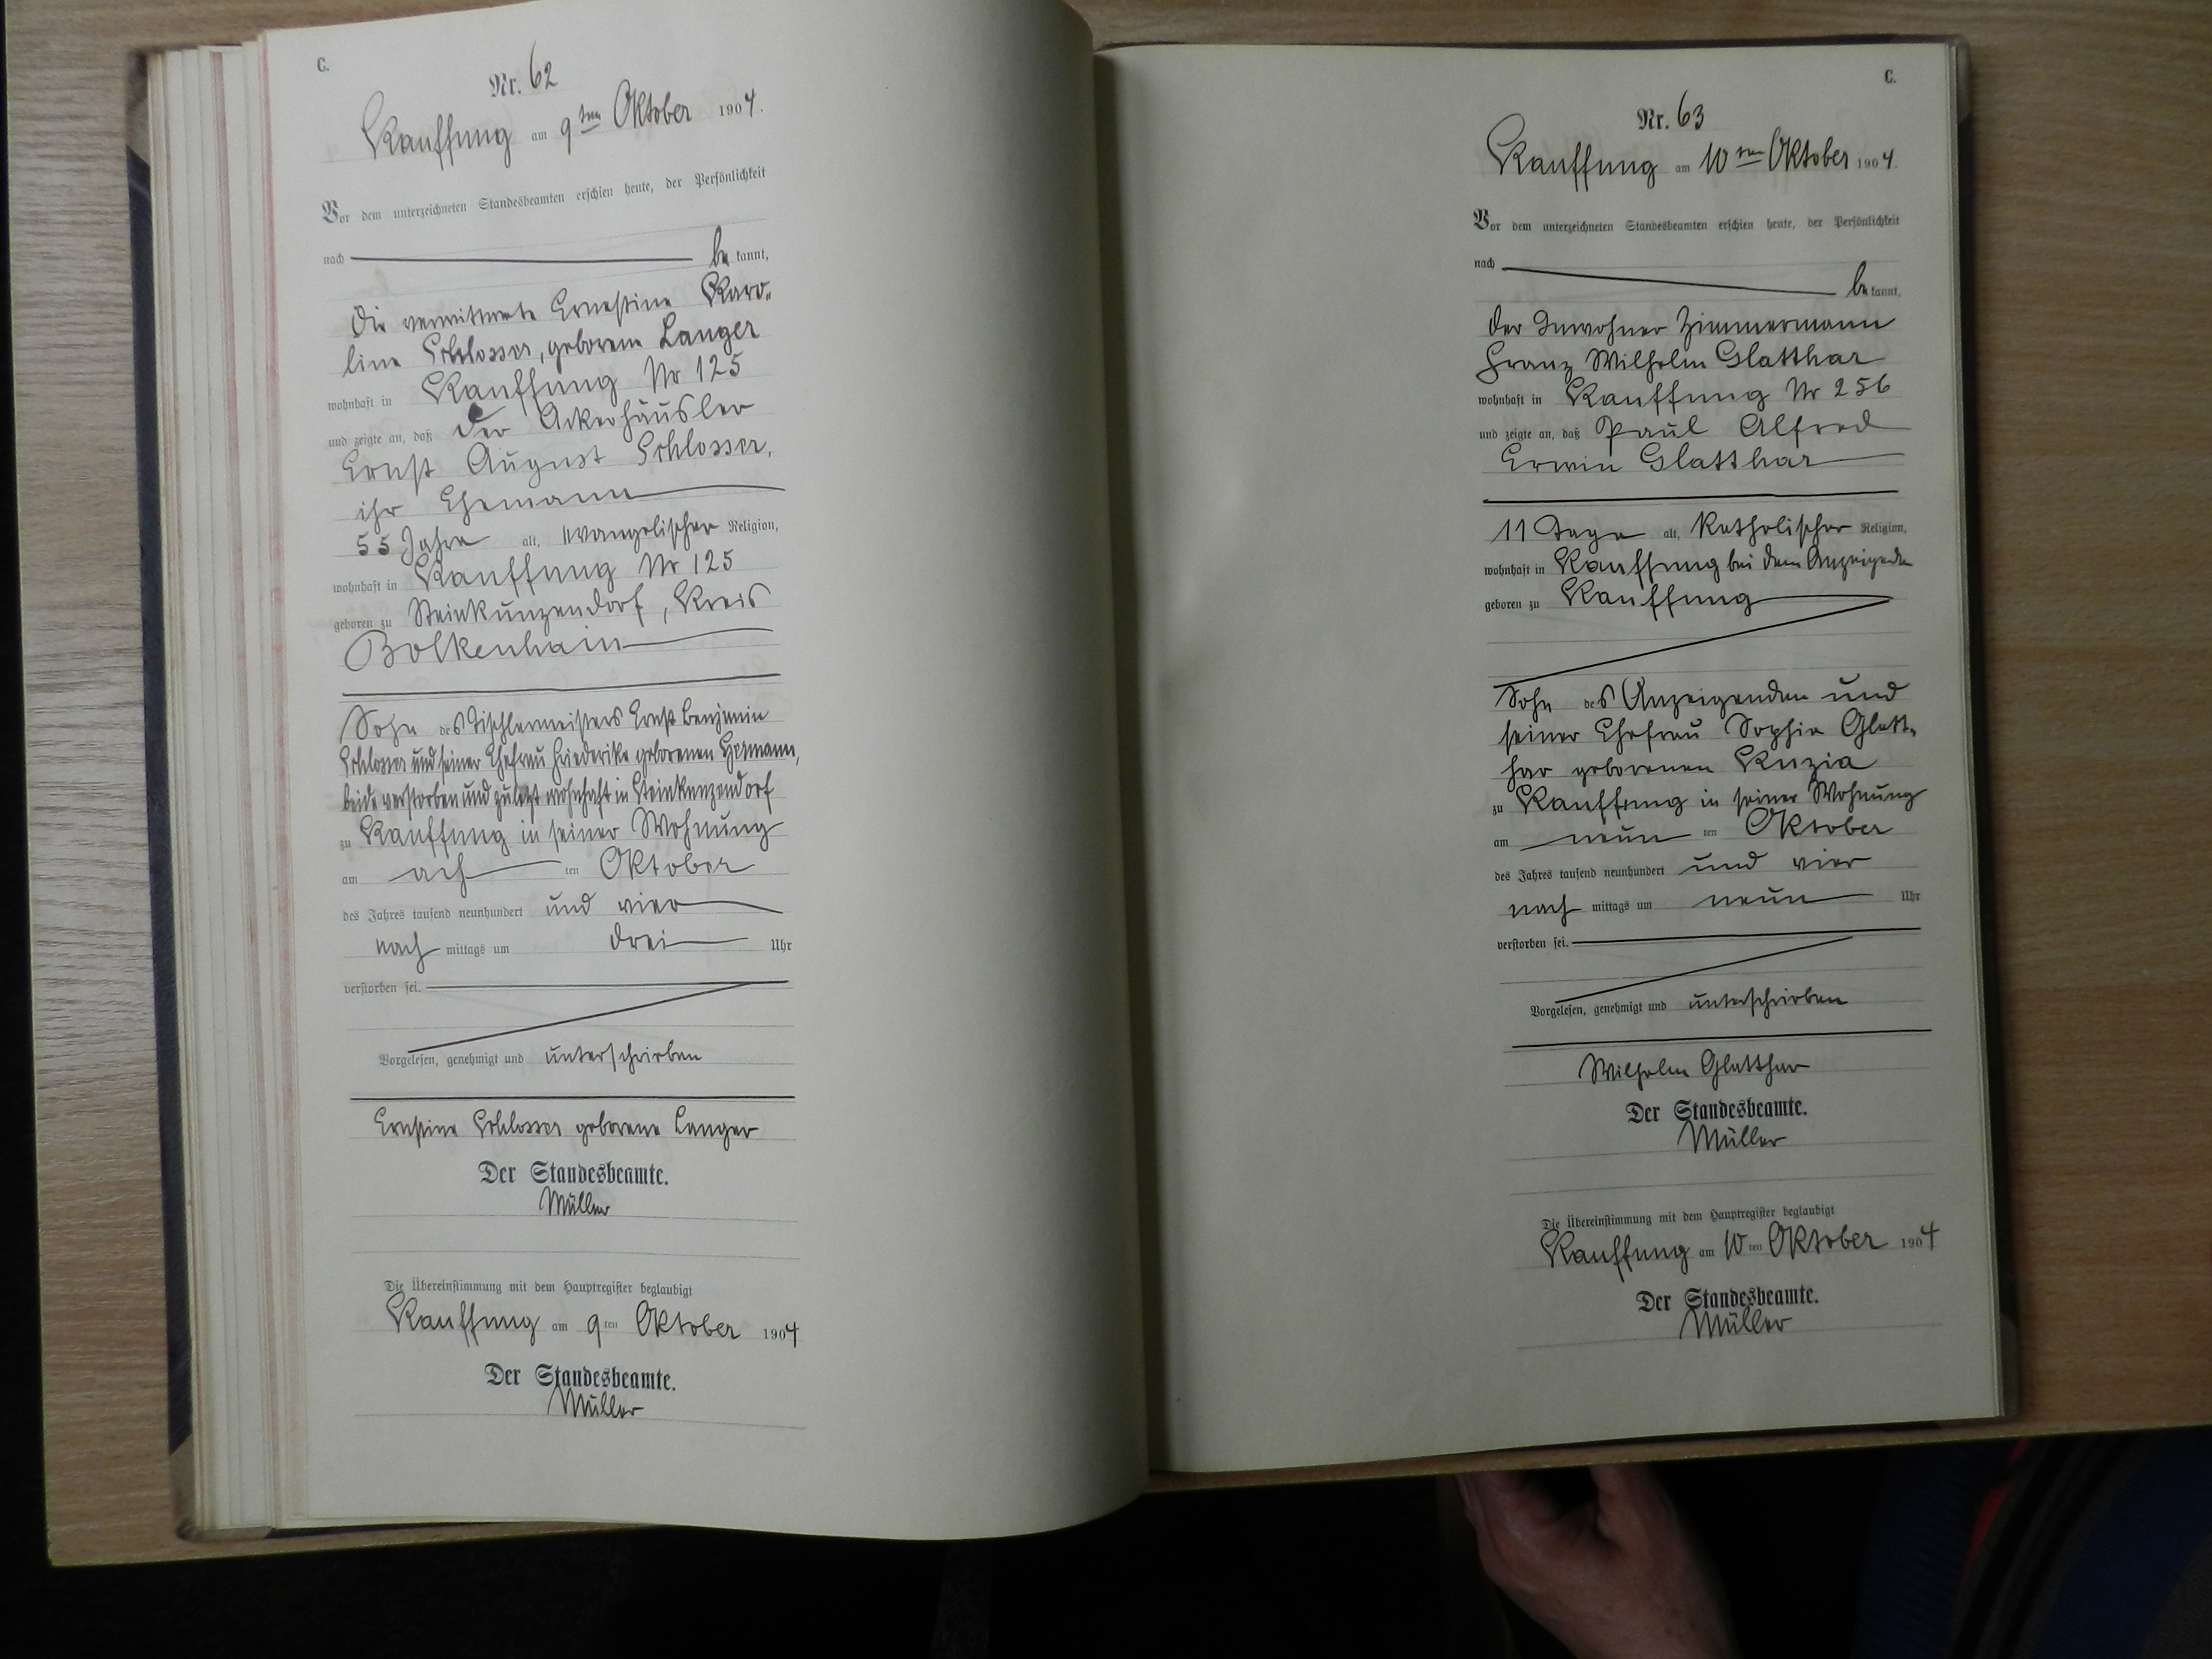 C.
Nr. 62
Kauffung am 9ten Oktober 1904.
Vor dem unterzeichneten Standesbeamten erschien heute, der Persönlichkeit
nach be kannt,
die verwittwete Ernestine Karo-
line Schlosser, geborene Langer
wohnhaft in Kauffung Nr 125
und zeigte an, daß der Ackerhäusler
Ernst August Schlosser,
ihr Ehemann
55 Jahre alt, evangelischer Religion,
wohnhaft in Kauffung Nr 125
geboren zu Steinkunzendorf, Kreis
Bolkenhain
Sohn des Tischlermeisters Ernst Benjamin
Schlosser und seiner Ehefrau Friederike geborenen
beide verstorben und zuletzt wohnhaft in Steinkunzendorf
zu Kauffung in seiner Wohnung
am ach ten Oktober
des Jahres tausend neunhundert und vier
nach mittags um drei Uhr
verstorben sei.
Vorgelesen, genehmigt und unterschrieben
Ernestine Schlosser geborene Langer
Der Standesbeamte.
Müller
Die Übereinstimmung mit dem Hauptregister beglaubigt
Kauffung am 9ten Oktober 1904
Der Standesbeamte.
Müller
C.
Nr. 63
Kauffung am 10ten Oktober 1904.
Vor dem unterzeichneten Standesbeamten erschien heute, der Persönlichkeit
nach be kannt,
der Inwohner Zimmermann
Franz Wilhelm Glatthar
wohnhaft in Kauffung Nr 256
und zeigte an, daß Paul Alfred
Erwin Glatthar
11 Tage alt, katholischer Religion,
wohnhaft in Kauffung bei dem Anzeigenden
geboren zu Kauffung
Sohn des Anzeigenden und
seiner Ehefrau Sophie Glatt-
har geborenen Kuzia
zu Kauffung in seiner Wohnung
am neun ten Oktober
des Jahres tausend neunhundert und vier
nach mittags um neun Uhr
verstorben sei.
Vorgelesen, genehmigt und unterschrieben
Wilhelm Glatthar
Der Standesbeamte.
Müller
Die Übereinstimmung mit dem Hauptregister beglaubigt
Kauffung am 10ten Oktober 1904
Der Standesbeamte.
Müller